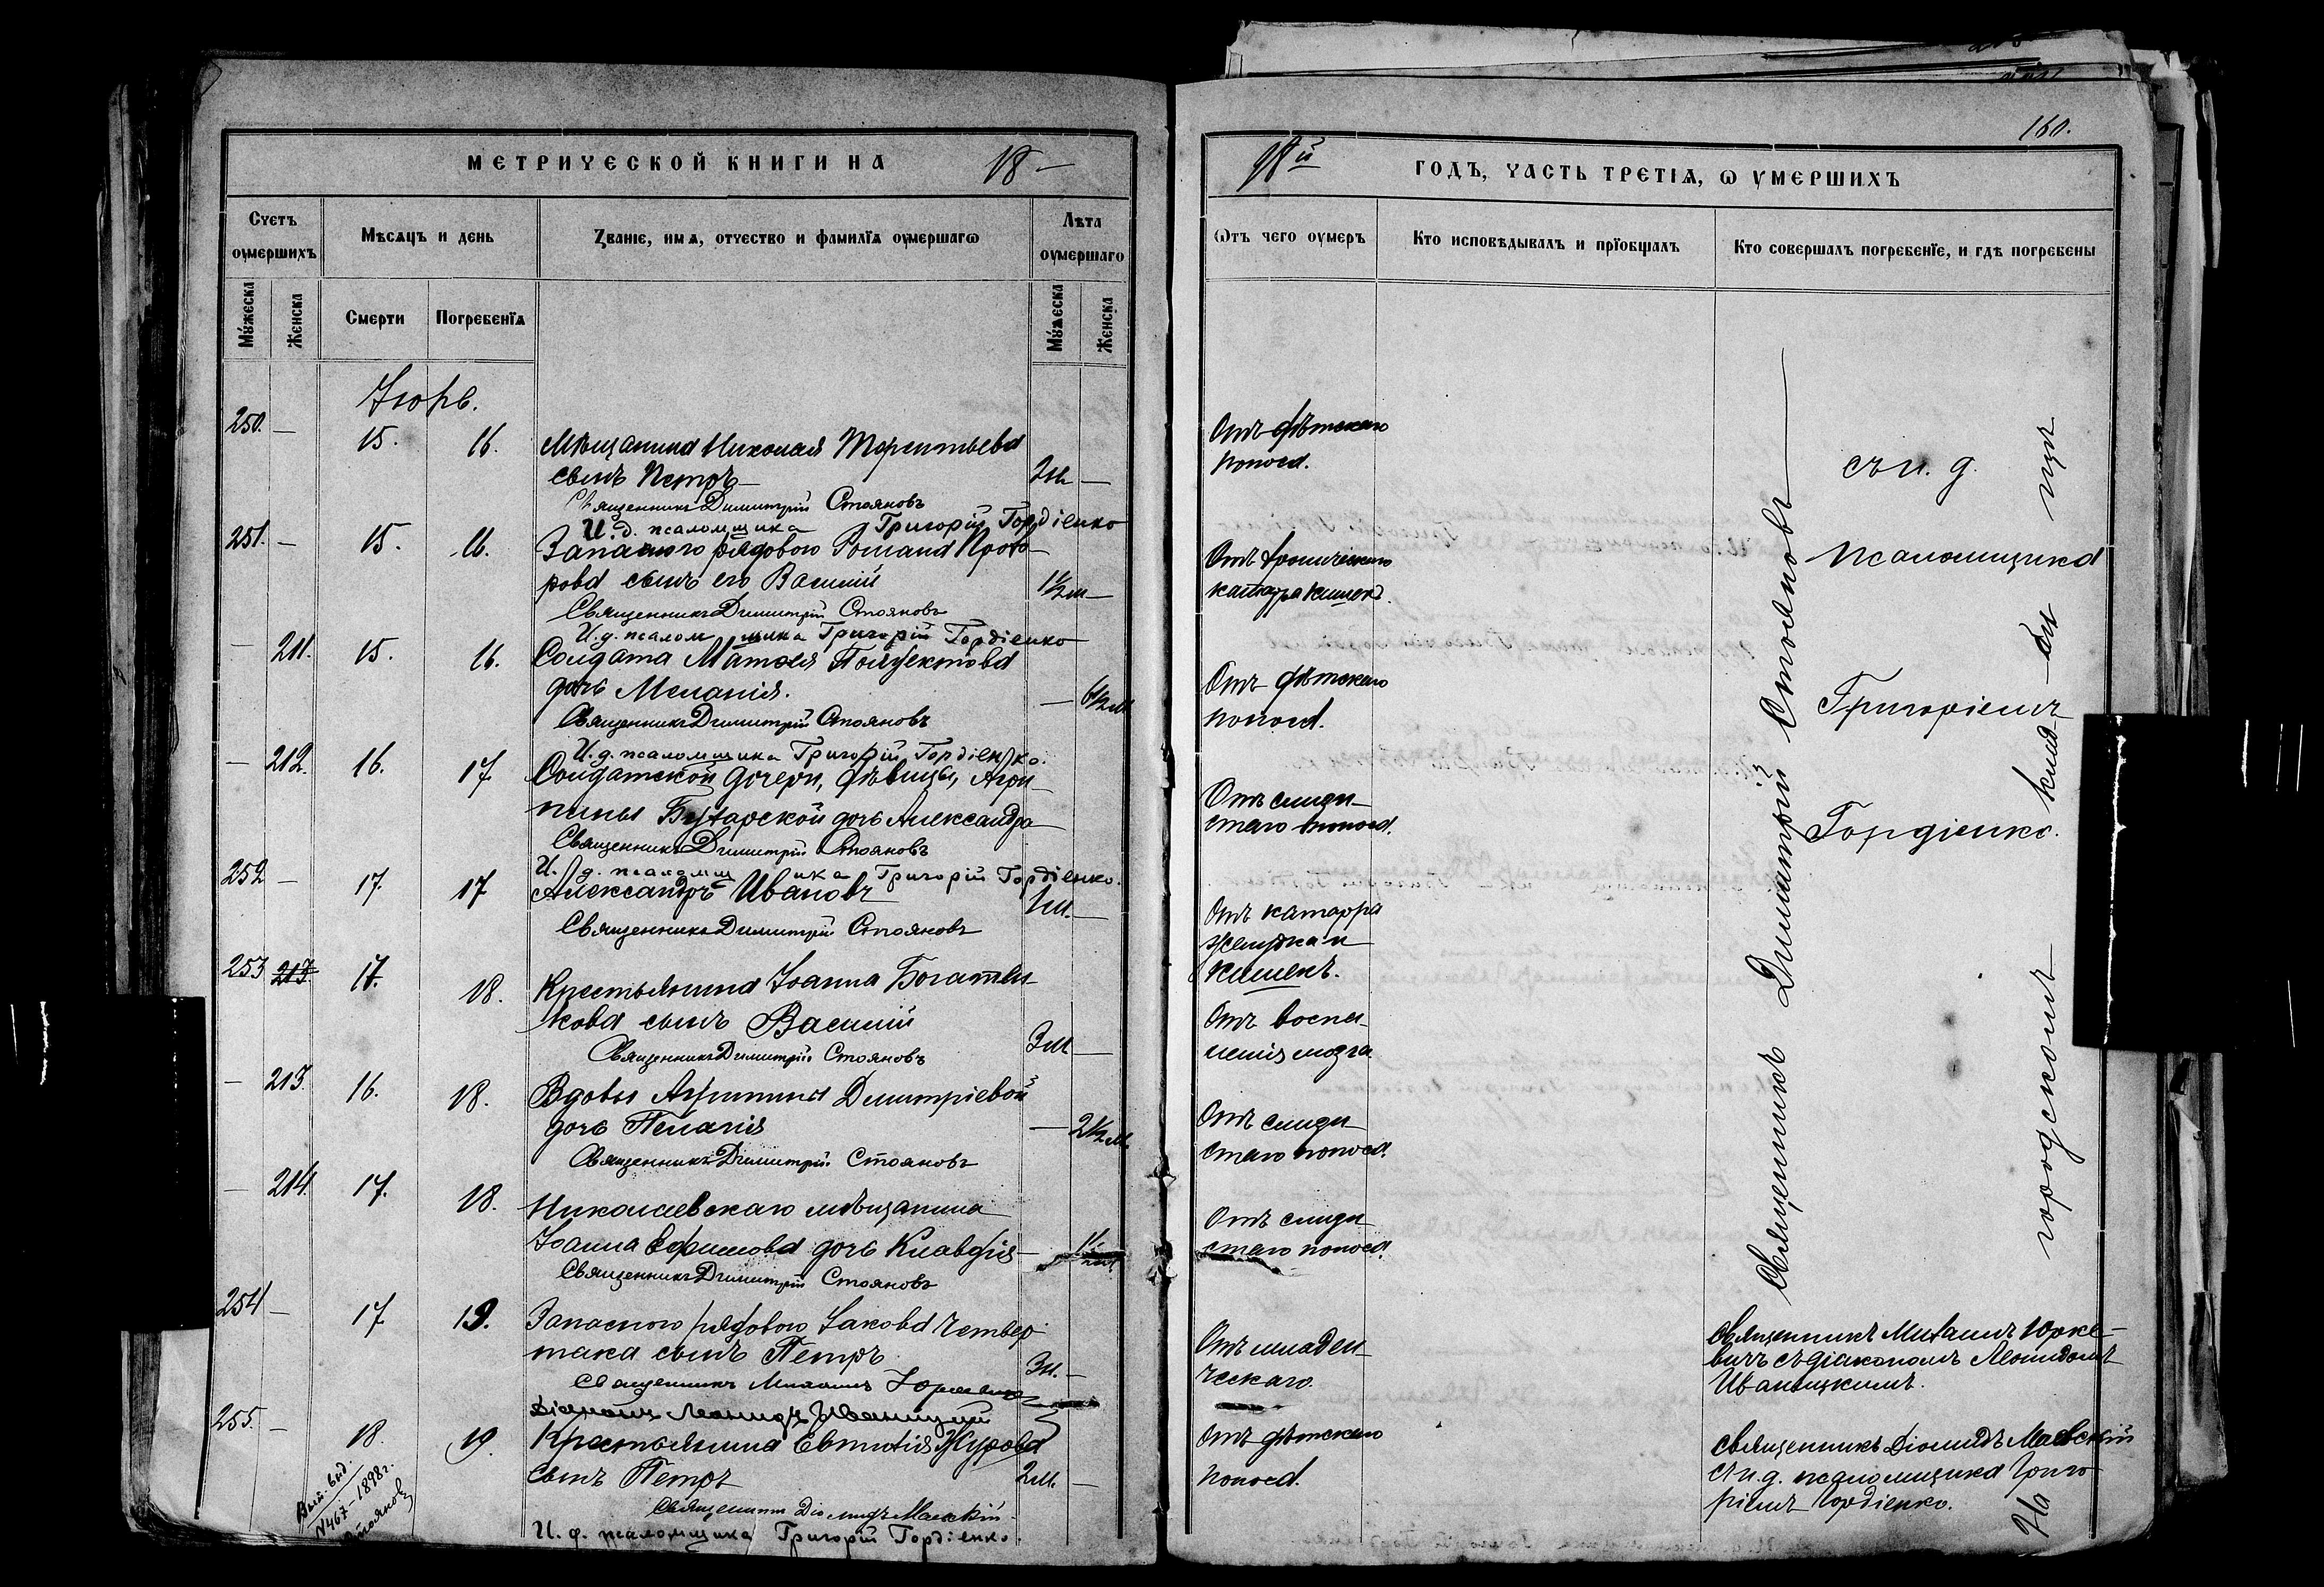 МЕТРИЧЕСКОЙ КНИГИ НА 18 —
Счетъ оумершихъ
Мѣсяцъ и день
Званіе, имя, отчество и фамилія оумершагѡ
Лѣта оумершаго
Мужеска
Женска
Смерти
Погребенія
Мужеска
Женска
250. — 15. 16. Мѣщанина Николая Терентьева
сынъ Петръ — 2м —
Священникъ Димитрій Стояновъ
И. д. псаломщика Григорій Гордіенко
251. — 15. 16. Запасного рядового Романа Прохо-
рова сынъ его Василій 1½м —
Священникъ Димитрій Стояновъ
И. д. псаломщика Григорій Гордіенко
— 211. 15. 16. Солдата Матѳея Полуектова
дочь Меланія. — 6½м
Священникъ Димитрій Стояновъ
И. д. псаломщика Григорій Гордіенко.
— 212. 16. 17 Солдатской дочери, дѣвицы, Агри-
пины Бухарской дочь Александра
Священникъ Димитрій Стояновъ
И. д. псаломщика Григорій Гордіенко.
252 — 17. 17 Александръ Ивановъ 1м. —
Священникъ Димитрій Стояновъ
253 213. 17. 18. Крестьянина Іоанна Богаты-
кова сынъ Василій 3м —
Священникъ Димитрій Стояновъ
— 213. 16. 18. Вдовы Агрипины Димитріевой
дочь Пелагія — 2½м.
Священникъ Димитрій Стояновъ
— 214. 17. 18. Николаевскаго мѣщанина
Іоанна Ефимова дочь Клавдія —
Священникъ Димитрій Стояновъ
254 — 17 19. Запасного рядового Іакова Четвер-
така сынъ Петръ 3м. —
Священникъ Михаилъ Юркевичъ
Діаконъ Леонидъ Иваницкій
255. — 18. 19. Крестьянина Евтихія Журова
сынъ Петръ 2м. —
Священникъ Діомидъ Маевскій
И. д. псаломщика Григорій Гордіенко.
Вып. выд.
N467 – 1898 г.
Стояновъ
160.
98й ГОДЪ, ЧАСТЬ ТРЕТІЯ, Ѡ УМЕРШИХЪ
Ѿтъ чего оумеръ
Кто исповѣдывалъ и пріобщалъ
Кто совершалъ погребеніе, и гдѣ погребены
Отъ дѣтскаго
поноса.
Отъ хроническаго
катарра кишекъ.
Отъ дѣтскаго
поноса.
Отъ слизи-
стаго поноса.
Отъ катарра
желудка и
кишекъ.
Отъ воспа-
ленія мозга.
Отъ слизи-
стаго поноса.
Отъ слизи-
стаго поноса.
Отъ младен-
ческаго.
Отъ дѣтскаго
поноса.
Священникъ Димитрій Стояновъ
съ и. д.
псаломщика
Григоріемъ
Гордіенко.
Священникъ Михаилъ Юрке-
вичъ съ діакономъ Леонидомъ
Иваницкимъ.
Священникъ Діомидъ Маевскій
съ и. д. псаломщика Григо-
ріемъ Гордіенко.
На городскомъ